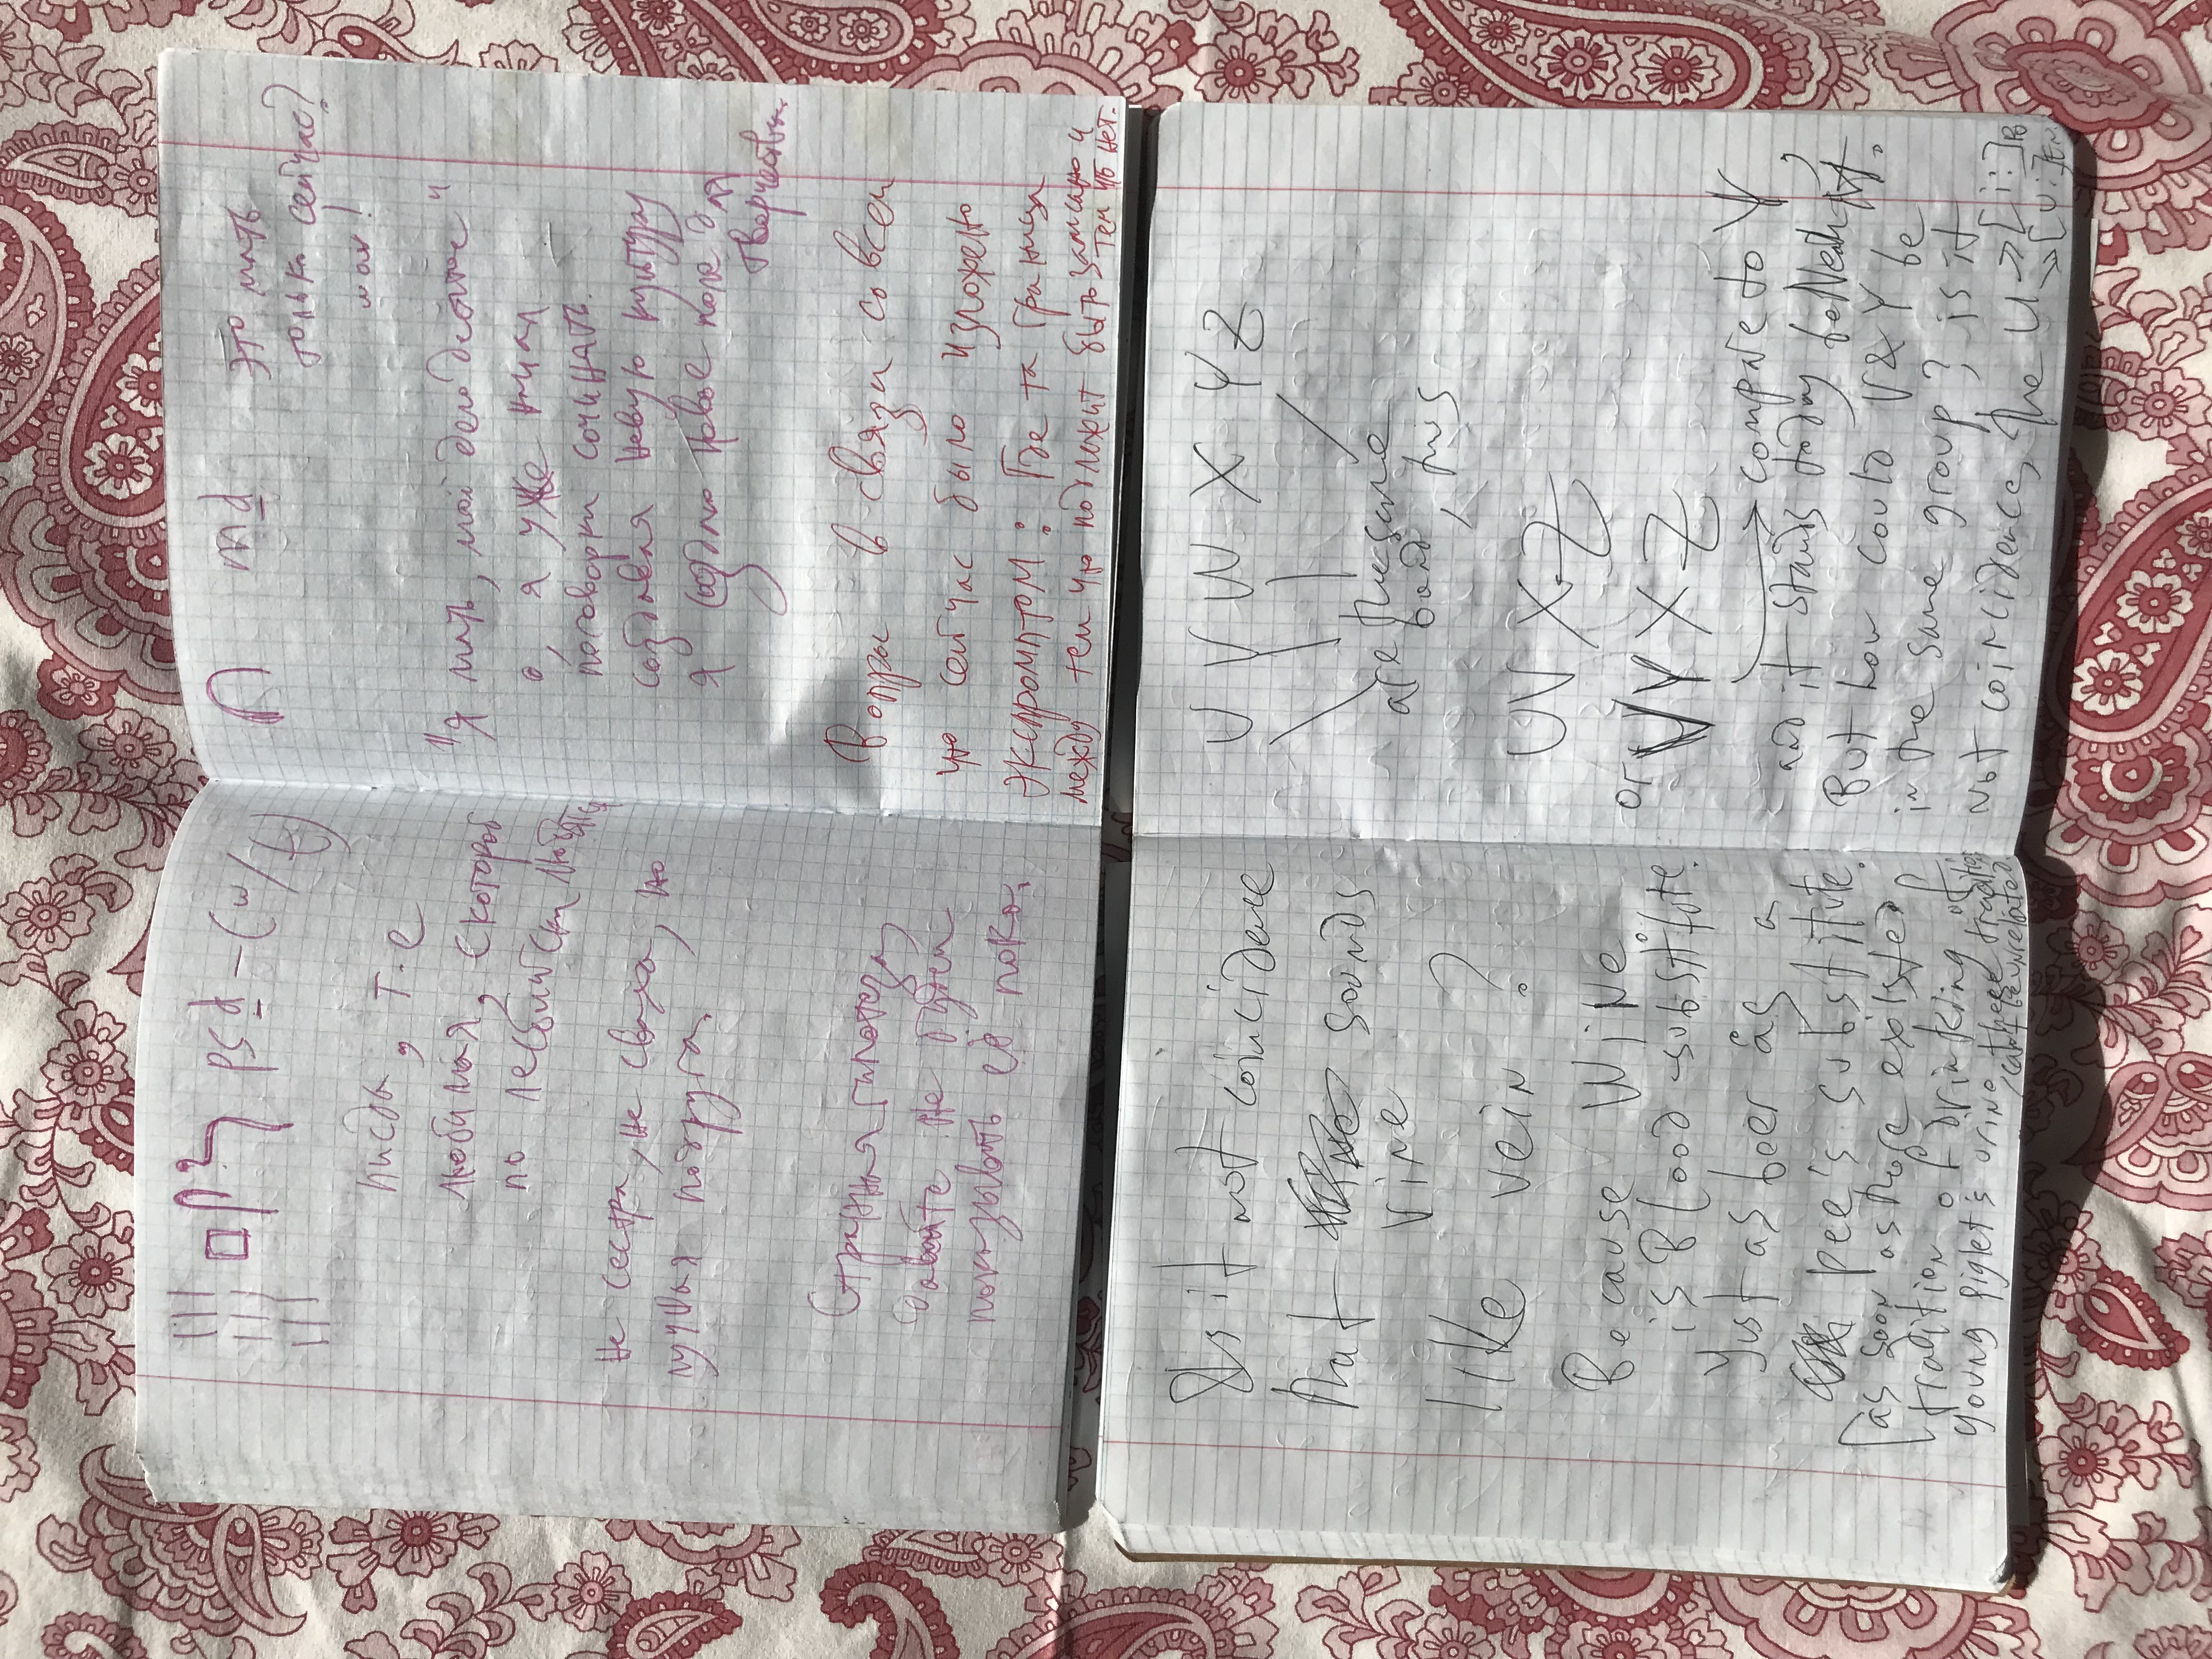 psḏ-(w/t)
писда, т.е
любимая, с которой
по лесбийски любятся
не сестра, не сваха, но
лучшая подруга.
Странная гипотеза,
давайте не будем
показывать её пока.
mḏ это мать
только сейчас?
"Я мать, моё дело десятое"
о, я уже начал
поговорки сочинать.
создавая новую культуру
я создаю новое поле для
творчества.
Вопрос в связи со всем
что сейчас было изложено
экспромптом: Где та граница
между тем что подлежит быть записано и
тем что нет.
Is it not coincidence
that sounds
vine
like vein?
Because WiNe
is Blood substitute.
Just as beer as a
pee's substitute.
[as soon as there existed
tradition of drinking of
young piglet's urine, these traditions
can't be unrelated.
U V W X Y Z
are the same
band, thus
UV X Z
or VY X Z
compare to Ψ,
and it stands today beNeath it.
But how could V & Y be
in the same group? is it
not coincidence, the U → [i:]
→ [u:]EN.